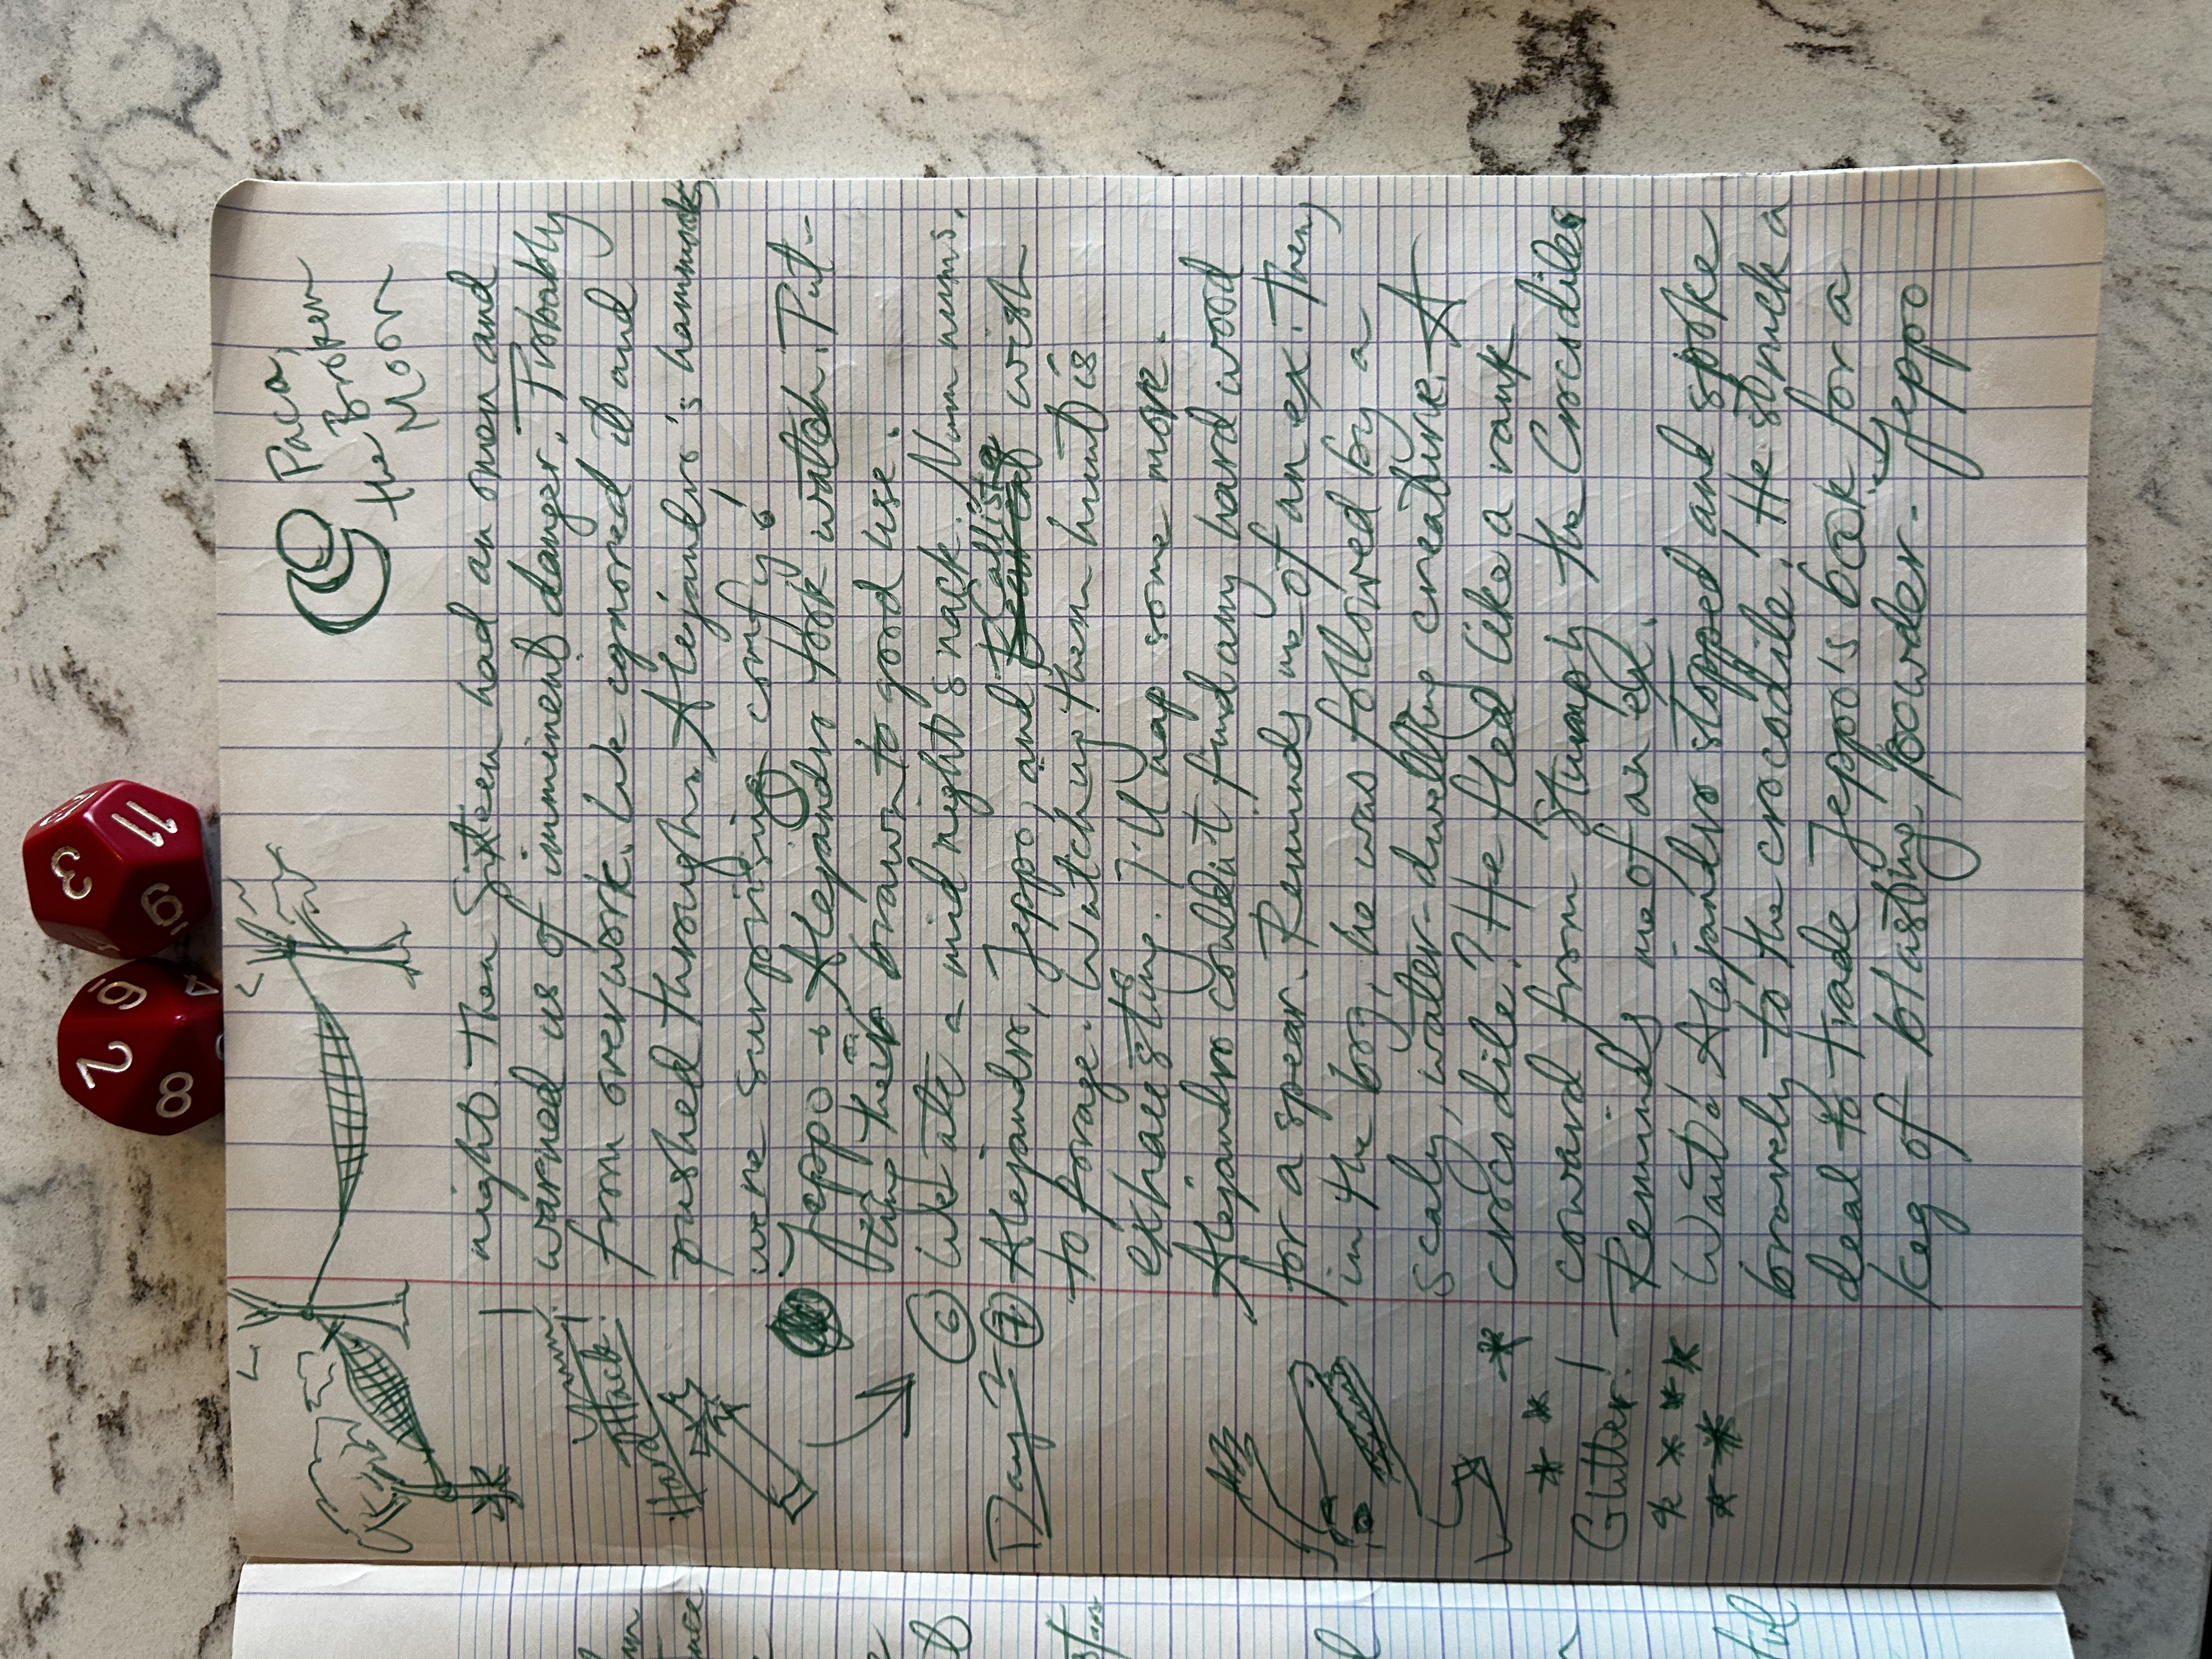 Paca,
the Broken
Moon
night. Then Siteen had an omen and
warned us of imminent danger. Probably
from overwork. We ignored it and
pushed through. Alejandro's hammocks
were surprisingly comfy!
Jeppo & Alejandro took watch. Put-
ting their brawn to good use.
6 We ate a midnight snack. Num nums.
Day 2 7 Alejandro, Jeppo, and Callista wish
to forage. Watching them hunt is
exhausting. I'll nap some more.
Alejandro couldn't find any hard wood
for a spear. Reminds me of an ex. Then,
in the bog, he was followed by a
scaly, water-dwelling creature. A
crocodile? He fled like a rank
coward from Stumpy the Crocodile.
Reminds me of an ex.
Wait! Alejandro stopped and spoke
bravely to the crocodile! He struck a
deal to trade Jeppo's book for a
keg of blasting powder. Jeppo
Yum!
Hard Attack!
Glitter!
11
3
19
2
6
8
4